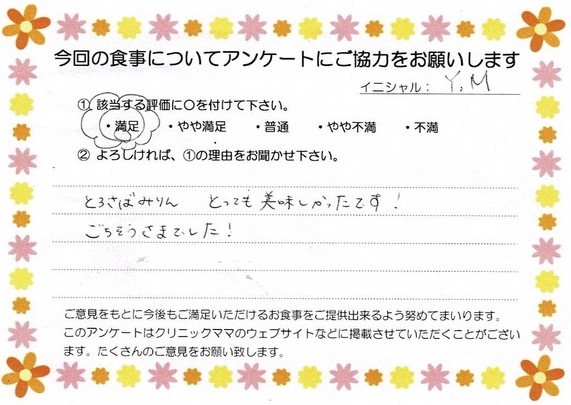 今回の食事についてアンケートにご協力をお願いします
イニシャル： Y.M
① 該当する評価に〇を付けて下さい。
・満足 ・やや満足 ・普通 ・やや不満 ・不満
② よろしければ、①の理由をお聞かせ下さい。
とろさばみりん とっても美味しかったです！
ごちそうさまでした！
ご意見をもとに今後もご満足いただけるお食事をご提供出来るよう努めてまいります。
このアンケートはクリニックママのウェブサイトなどに掲載させていただくことがござい
ます。たくさんのご意見をお願い致します。